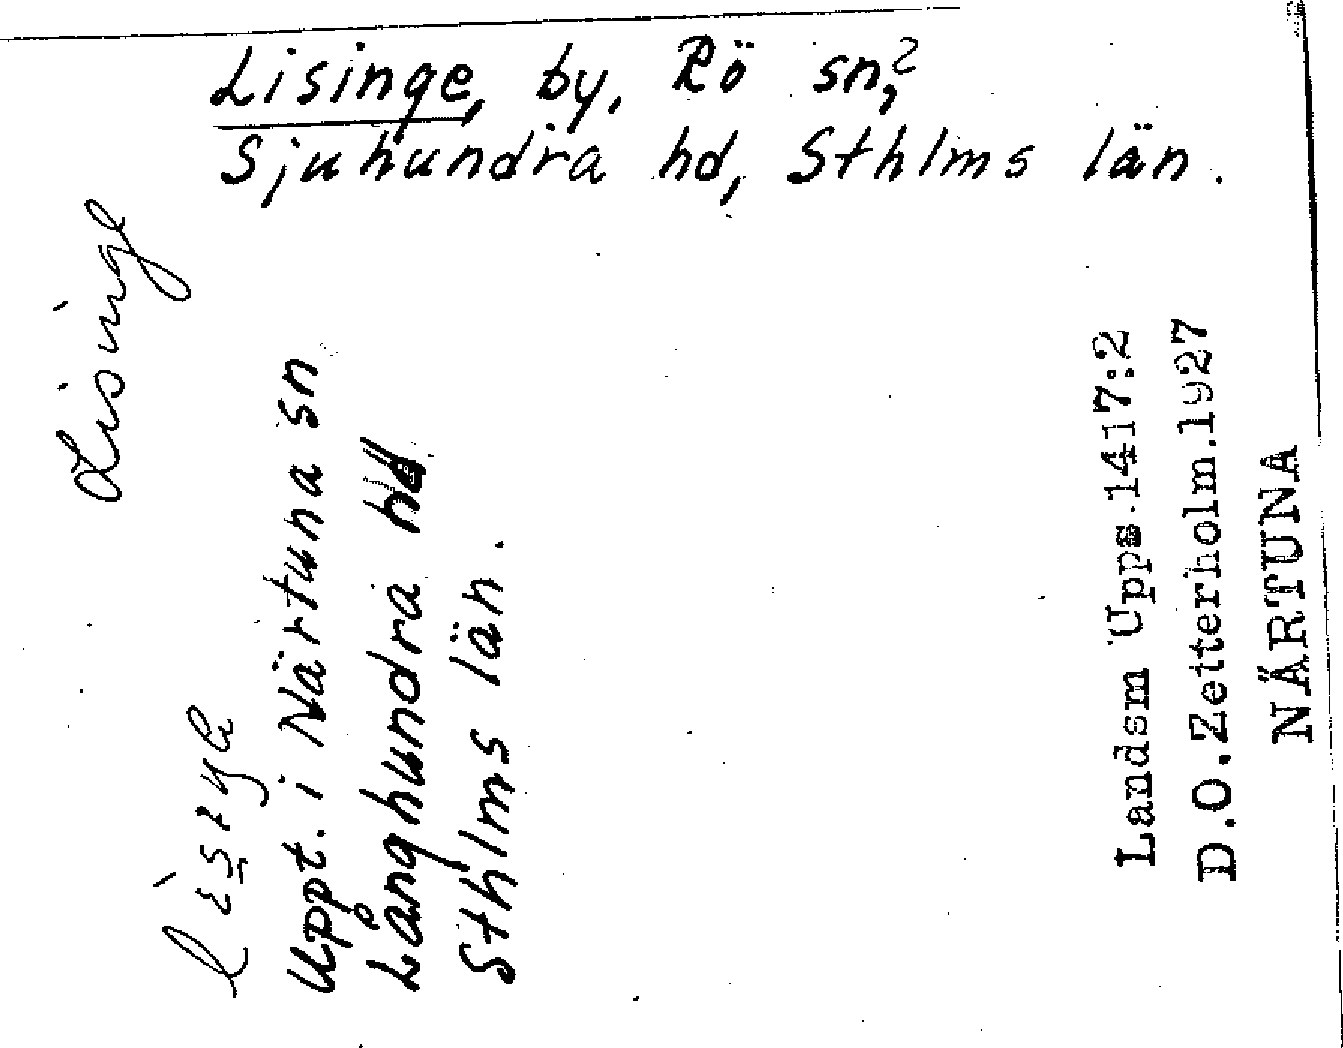 Lisinge, by, Rö sn,?
Sjuhundra hd, Sthlms län.
Lisinge
Uppt. i Närtuna sn
Långhundra hd
Sthlms län.
Landsm Upps.1417:2
D.O.Zetterholm.1927
NÄRTUNA